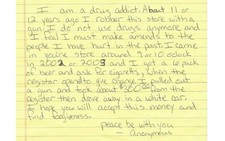 I am a drug addict. About 11 or
12 years ago I robbed this store with a
gun. I do not use drugs anymore and
I feel I must make amends to the
people I have hurt in the past. I came
in you're store around 9 or 10 oclock
in 2002 or 2003 and I got a 6 pack
of beer and ask for cigarets, when the
register opend to give change I pulled out
a gun and took about $300.00 from the
register then drove away in a white car.
I hope you will accept this money and
find forgivness.
peace be with you.
- Anonymous